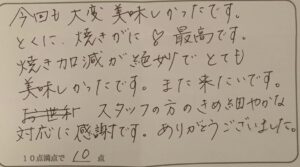 今回も大変美味しかったです。
とくに、焼きがに♡最高です。
焼き加減が絶妙でとても
美味しかったです。また来たいです。
スタッフの方のきめ細やかな
対応に感謝です。ありがとうございました。
10点満点で 10 点